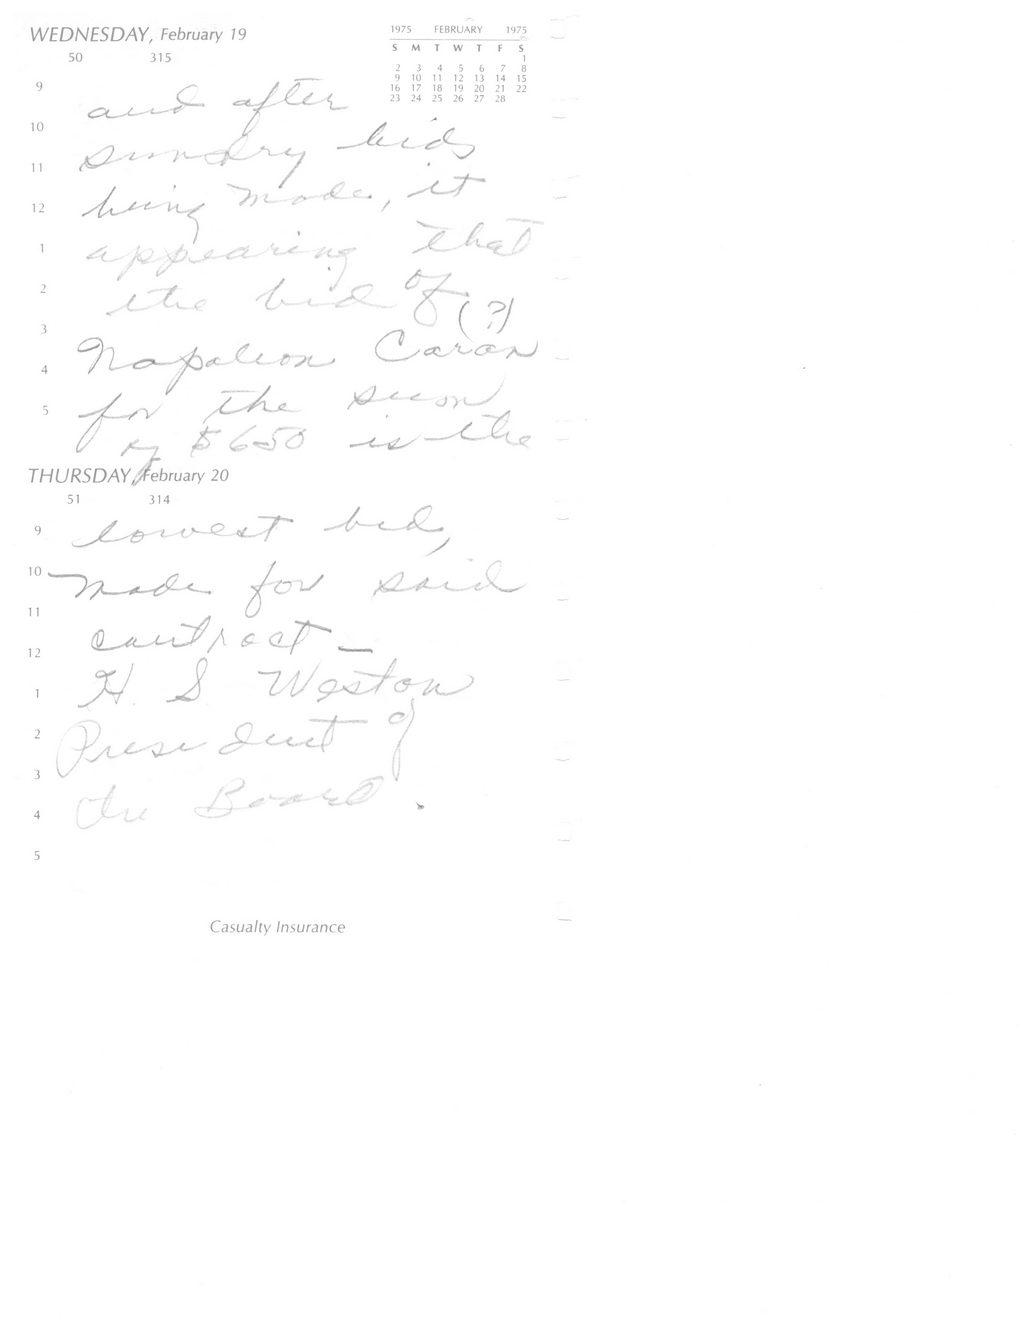 WEDNESDAY, February 19
50 315
1975 FEBRUARY 1975
S M T W T F S
1
2 3 4 5 6 7 8
9 10 11 12 13 14 15
16 17 18 19 20 21 22
23 24 25 26 27 28
9
and after
10
sundry bids
11
being made, it
12
1
appearing that
2
the bid of
3
(?)
4
Napoleon Caron
5
for the sum
of $650 is the
THURSDAY, February 20
51 314
9
lowest bid,
10
made for said
11
contract —
12
1
H. S. Weston
2
President of
3
4
the Board.
5
Casualty Insurance